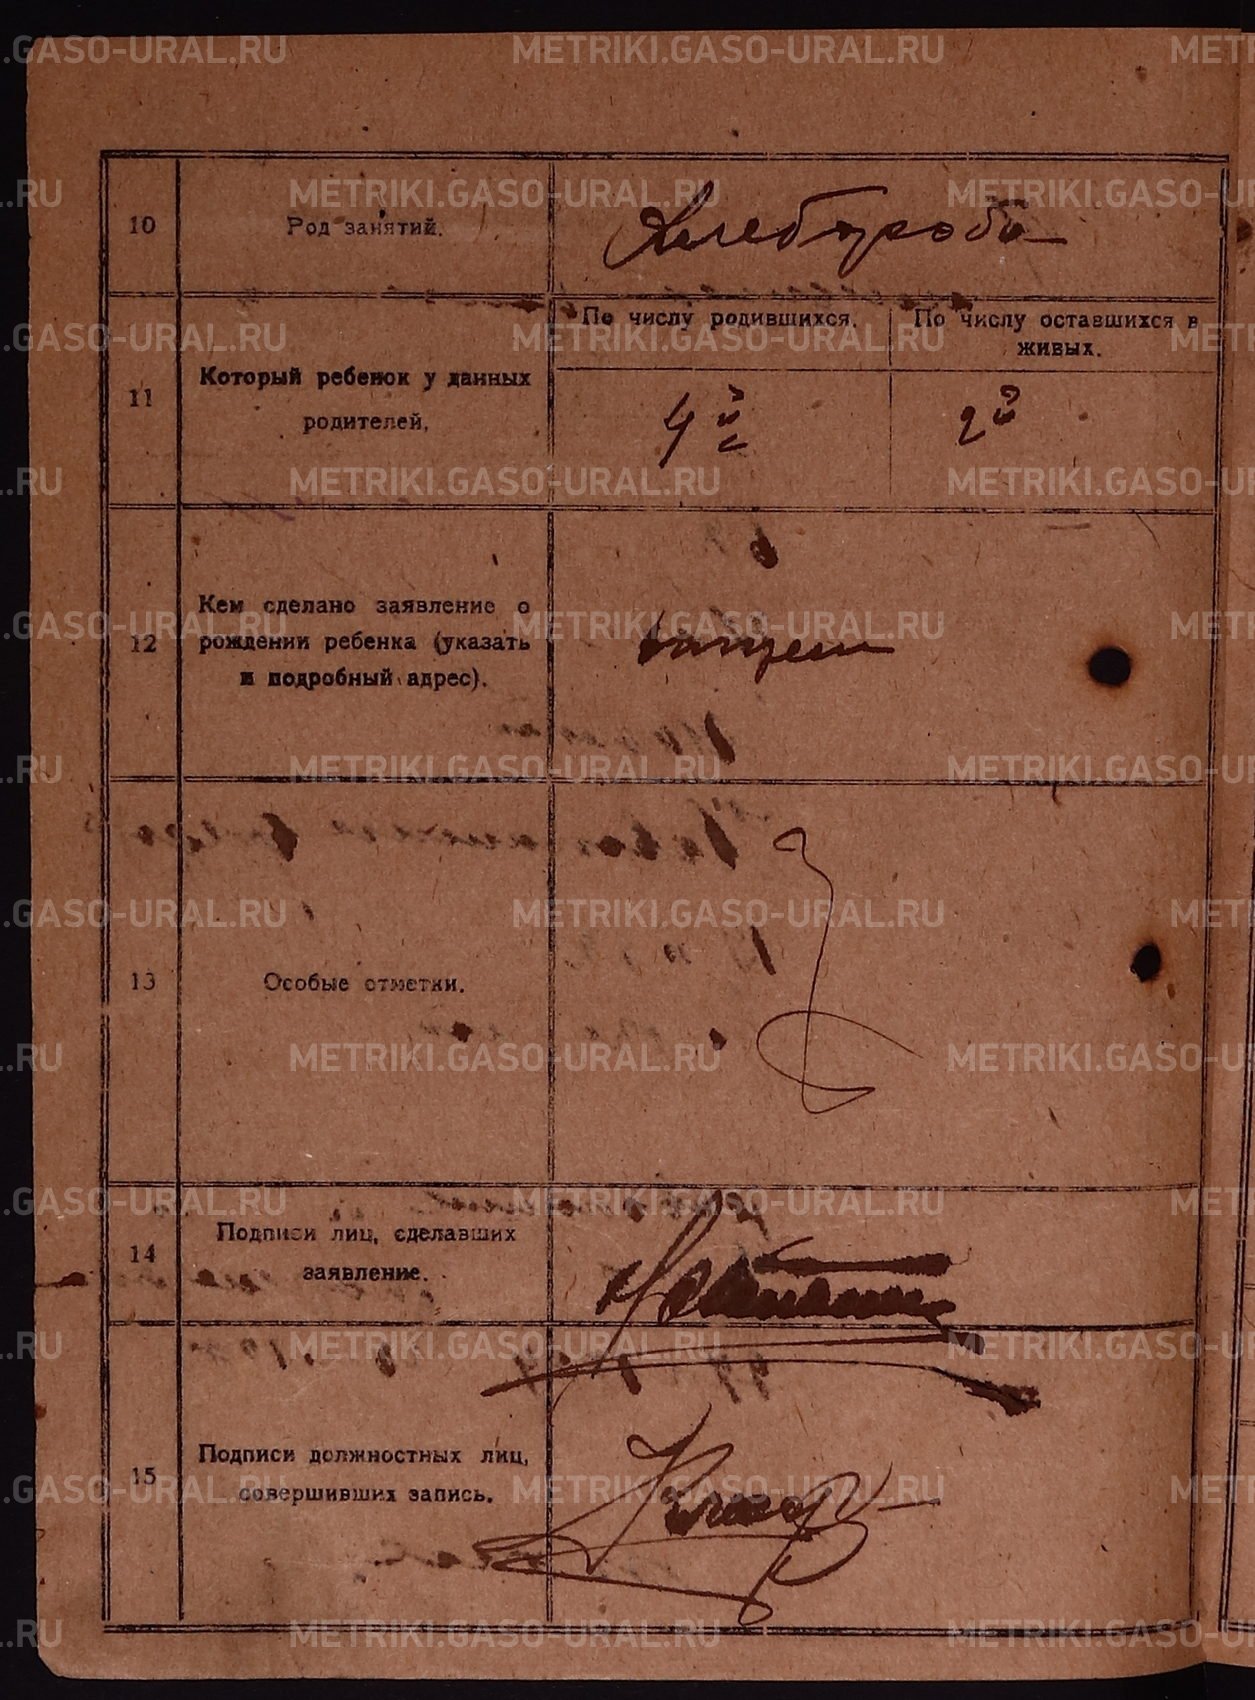 METRIKI.GASO-URAL.RU
10
Род занятий.
Хлебороб
11
Который ребенок у данных
родителей.
По числу родившихся.
По числу оставшихся в
живых.
4й
2й
12
Кем сделано заявление о
рождении ребенка (указать
и подробный адрес).
отцем
13
Особые отметки.
14
Подписи лиц, сделавших
заявление.
15
Подписи должностных лиц,
совершивших запись.